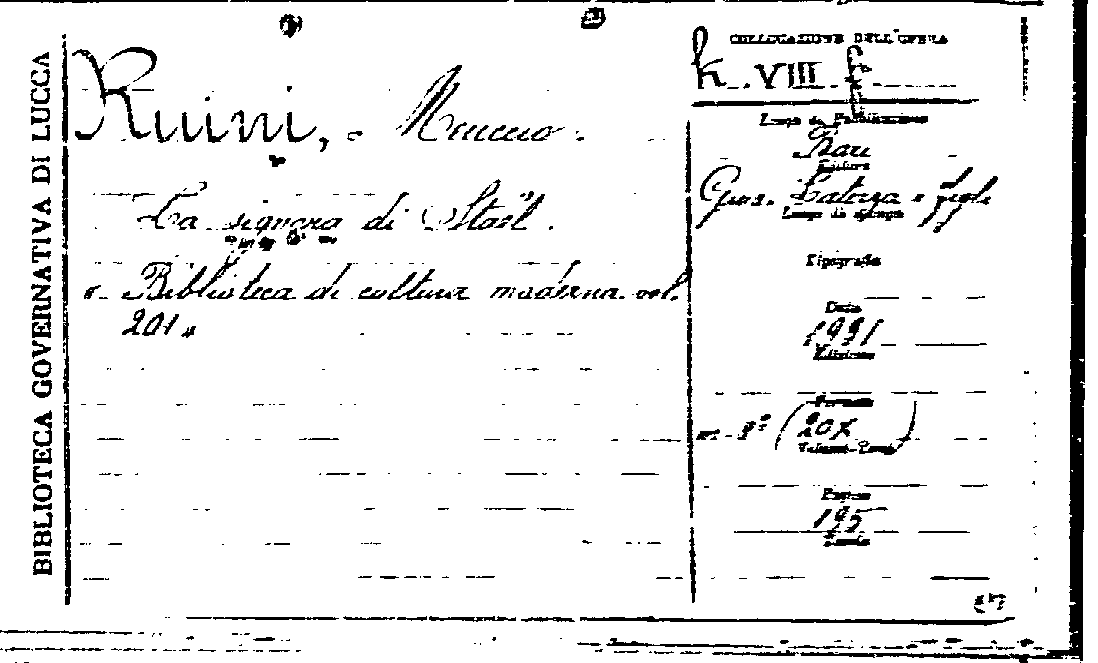 BIBLIOTECA GOVERNATIVA DI LUCCA
Ruini, - Meuccio -
La signora di Staël.
«- Biblioteca di cultura moderna vol.
201»
COLLOCAZIONE DELL'OPERA
k. VIII f
Luogo di Pubblicazione
Bari
Editore
Gius. Laterza e figli
Luogo di stampa
Tipografia
Data
1931
Edizione
Formato
in-8º (20x )
Volumi-Tomi
Pagine
195
Tavole